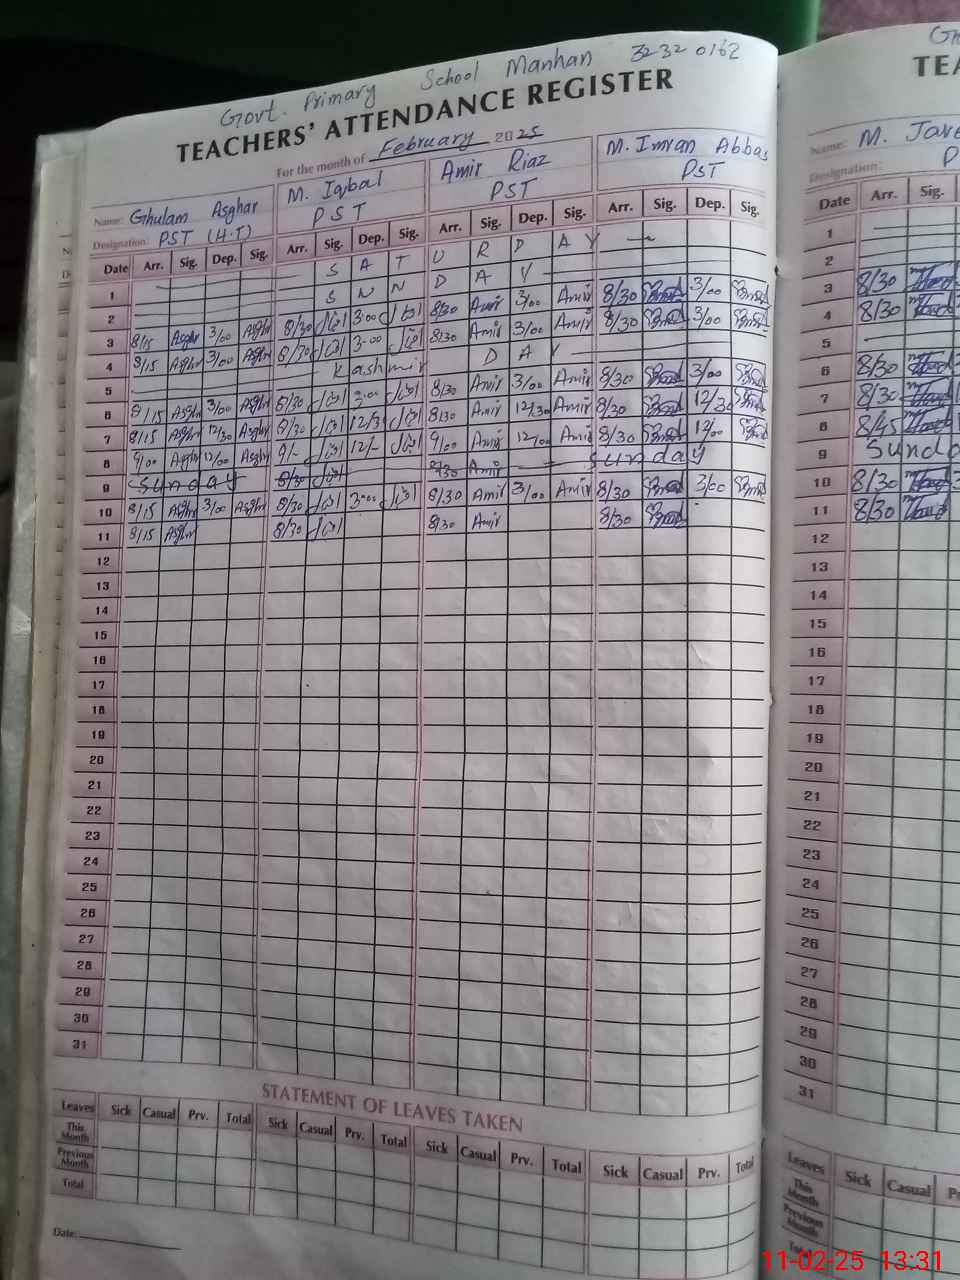 Govt. Primary School Manhan 32320162
TEACHERS' ATTENDANCE REGISTER
For the month of February 2025
Name: Ghulam Asghar M. Iqbal Amir Riaz M. Imran Abbas
Designation: PST (H.T) PST PST PST
Date Arr. Sig. Dep. Sig. Arr. Sig. Dep. Sig. Arr. Sig. Dep. Sig. Arr. Sig. Dep. Sig.
1 S A T U R D A Y
2 S U N D A Y
3 8/15 Asghr 3/00 Asghr 8/30 3:00 8/30 Amir 3/00 Amir 8/30 3/00
4 8/15 Asghr 3/00 Asghr 8/30 3:00 8/30 Amir 3/00 Amir 8/30 3/00
5 Kashmir D A Y
6 8/15 Asghr 3/00 Asghr 8/30 3:00 8/30 Amir 3/00 Amir 8/30 3/00
7 8/15 Asghr 12/30 Asghr 8/30 12/30 8/30 Amir 12/30 Amir 8/30 12/30
8 9/00 Asghr 12/00 Asghr 9/- 12/- 9/00 Amir 12/00 Amir 8/30 12/00
9 Sunday 8/30 8/30 Amir Sunday
10 8/15 Asghr 3/00 Asghr 8/30 3:00 8/30 Amir 3/00 Amir 8/30 3/00
11 8/15 Asghr 8/30 8/30 Amir 8/30
12
13
14
15
16
17
18
19
20
21
22
23
24
25
26
27
28
29
30
31
STATEMENT OF LEAVES TAKEN
Leaves Sick Casual Prv. Total Sick Casual Prv. Total Sick Casual Prv. Total Sick Casual Prv. Total
This Month
Previous Month
Total
Date:
TEA
Name: M. Jave
Designation: P
Date Arr. Sig.
1
2
3 8/30
4 8/30
5
6 8/30
7 8/30
8 8/45
9 Sunda
10 8/30
11 8/30
12
13
14
15
16
17
18
19
20
21
22
23
24
25
26
27
28
29
30
31
Leaves Sick Casual P
This Month
Previous Month
11-02-25 13:31